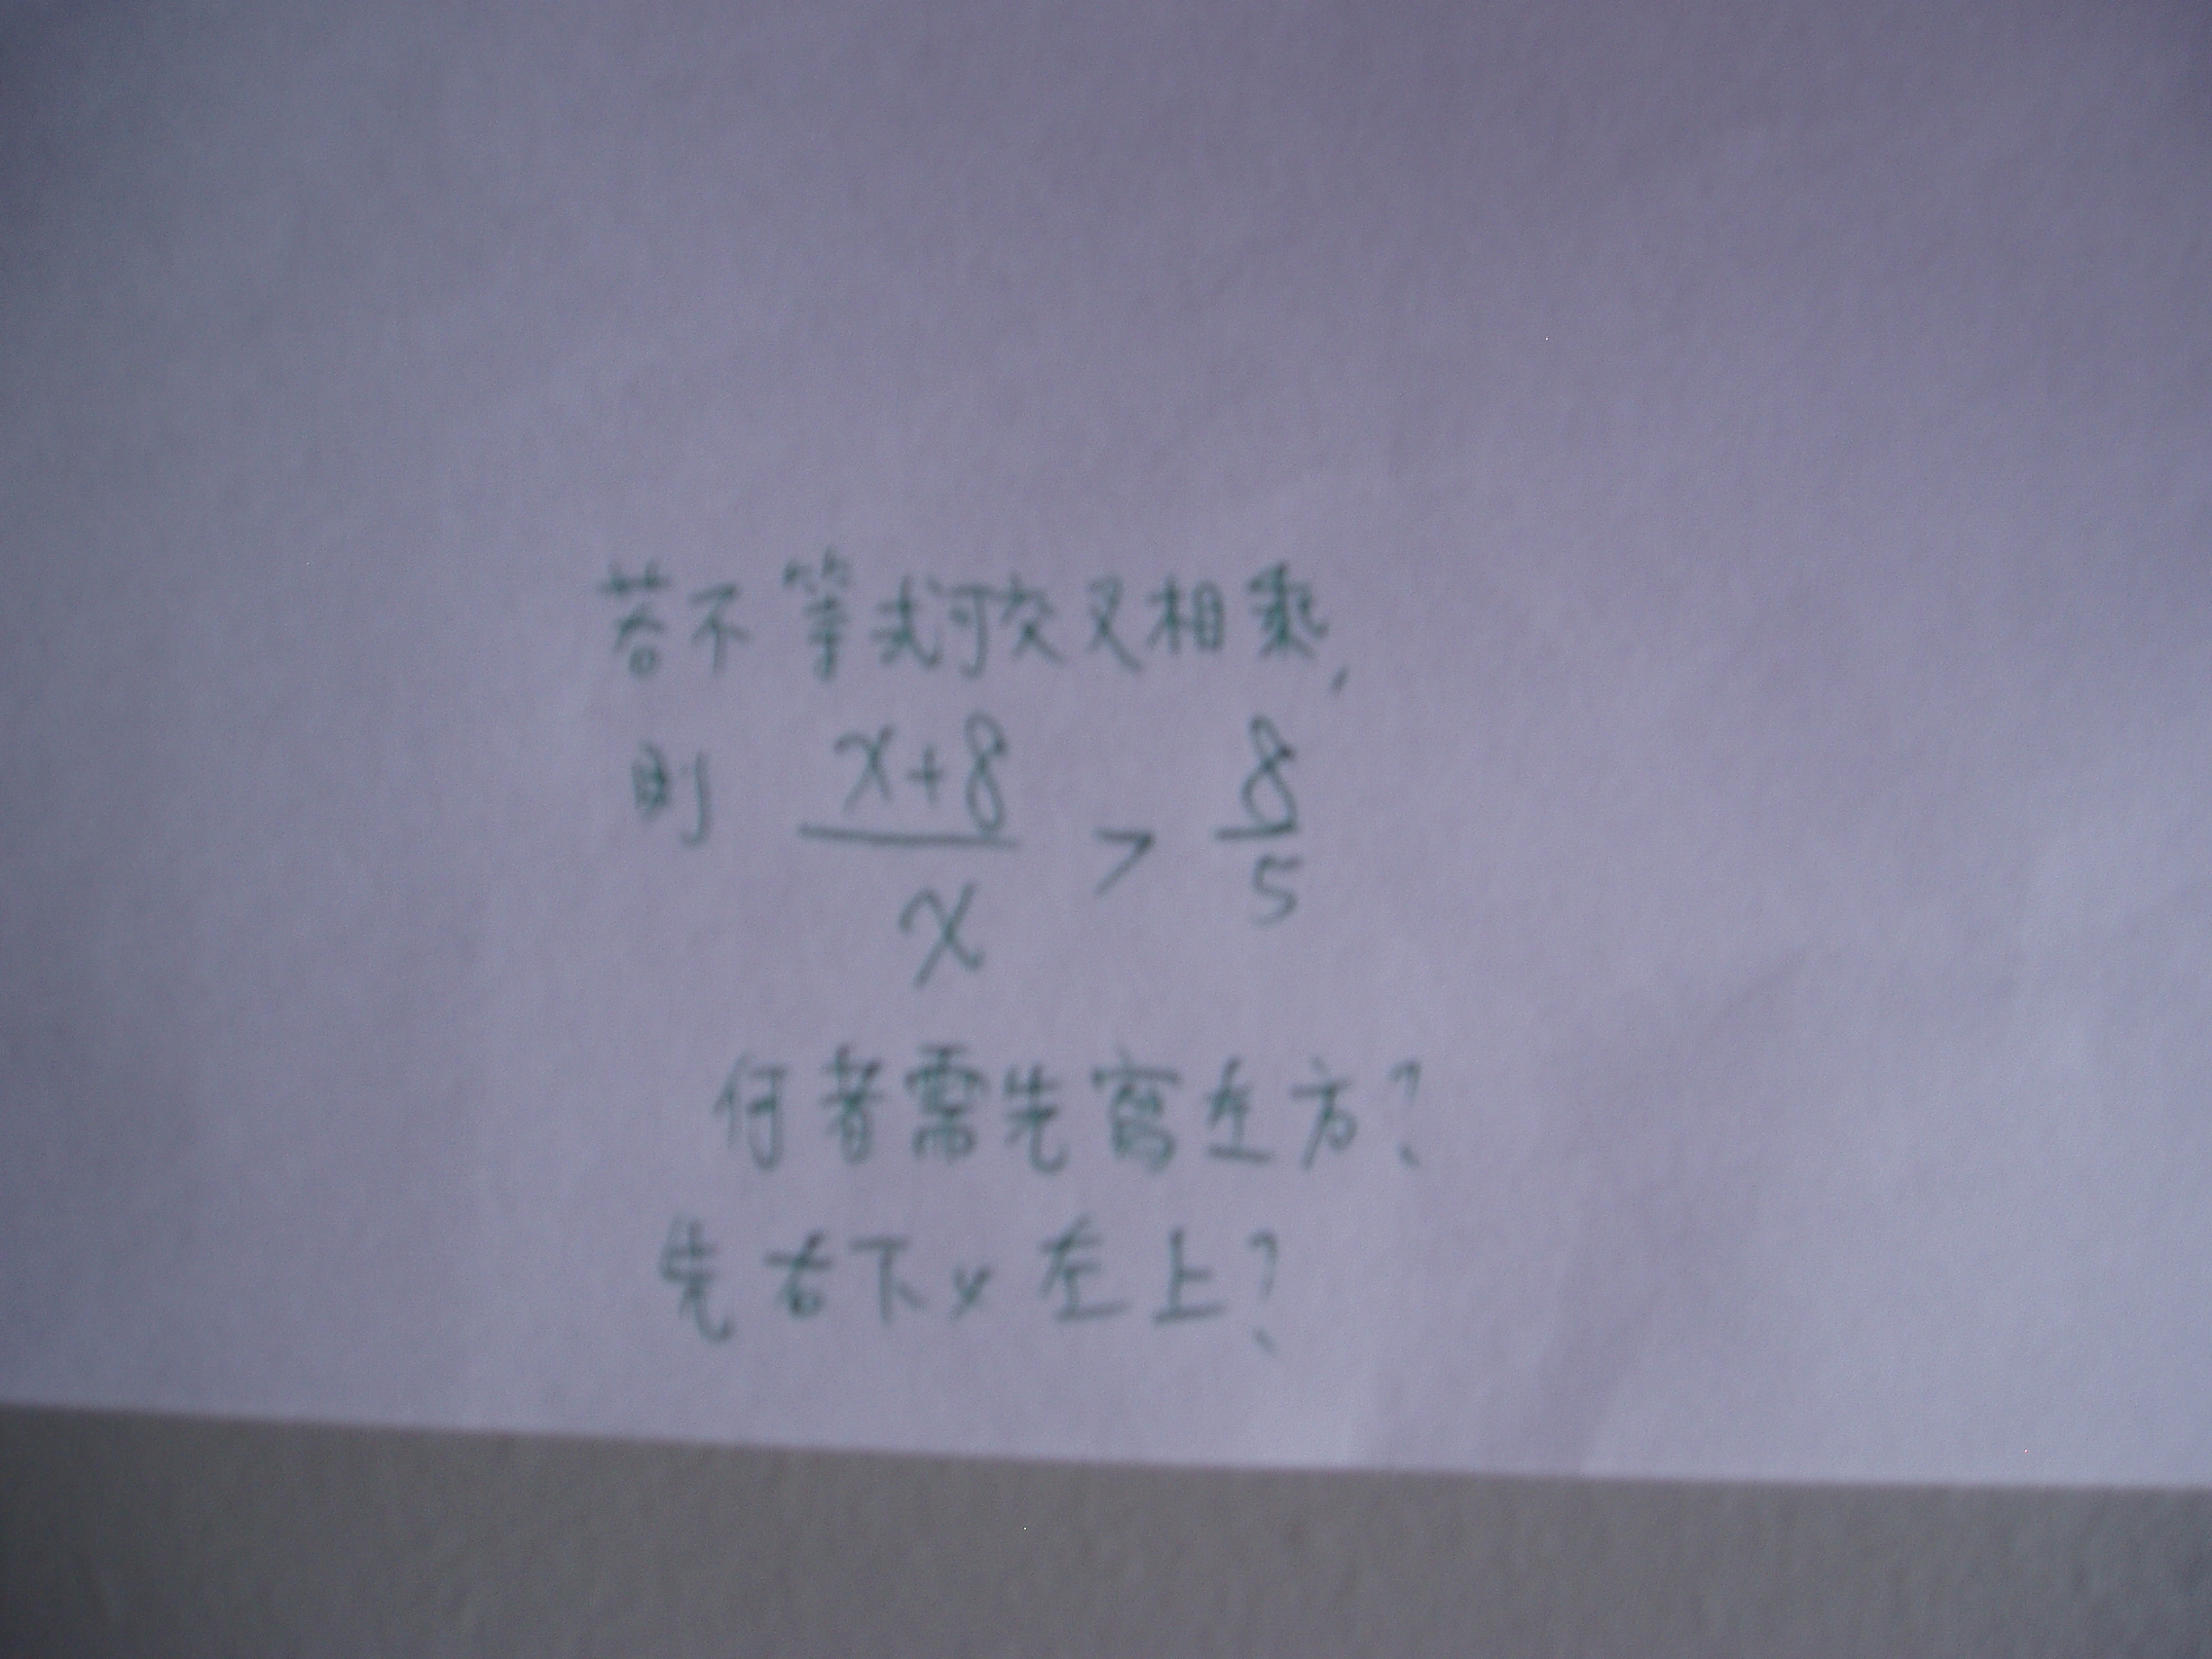 若不等式可交叉相乘,
則 x+8/x > 8/5
何者需先寫左方?
先右下x左上?